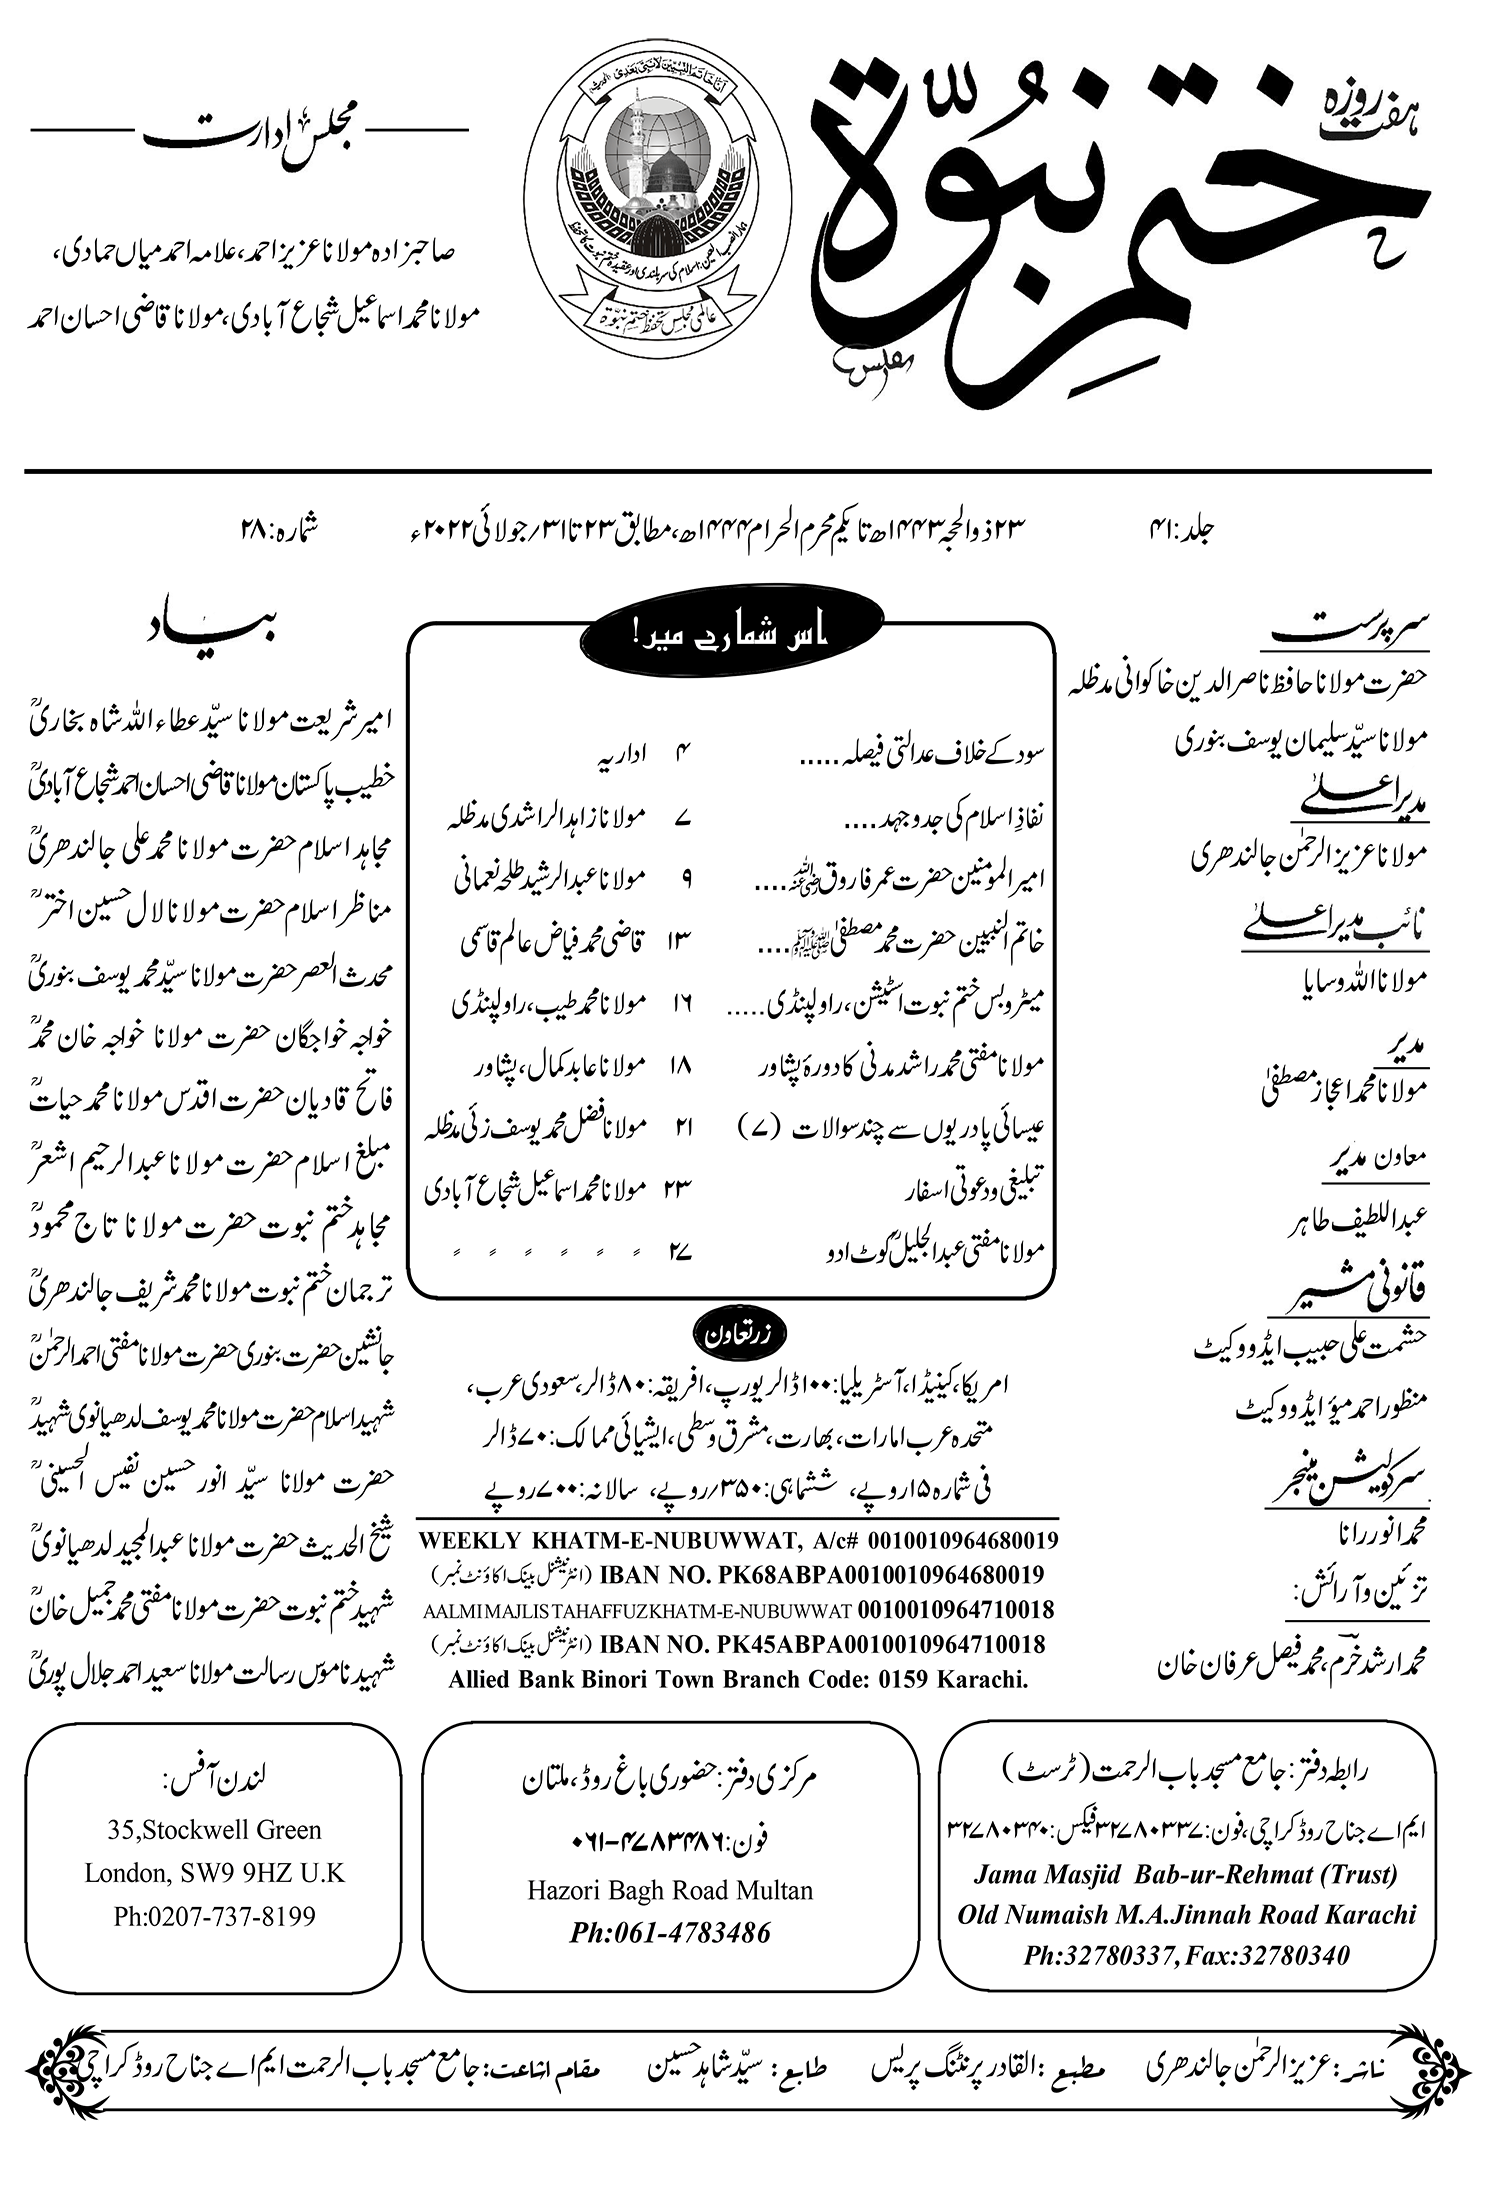 ہفت روزہ
ختم نبوّۃ
انا خاتم النبیین لا نبی بعدی
عالمی مجلس تحفظ ختم نبوّۃ
مجلس ادارت
صاحبزادہ مولانا عزیز احمد، علامہ احمد میاں حمادی،
مولانا محمد اسماعیل شجاع آبادی، مولانا قاضی احسان احمد
جلد: ۴۱
۲۳ ذوالحجہ ۱۴۴۳ھ تا یکم محرم الحرام ۱۴۴۴ھ، مطابق ۲۳ تا ۳۱/ جولائی ۲۰۲۲ء
شمارہ: ۲۸
سرپرست
حضرت مولانا حافظ ناصر الدین خاکوانی مدظلہ
مولانا سیّد سلیمان یوسف بنوری
مدیر اعلےٰ
مولانا عزیز الرحمٰن جالندھری
نائب مدیر اعلےٰ
مولانا اللہ وسایا
مدیر
مولانا محمد اعجاز مصطفیٰ
معاون مدیر
عبد اللطیف طاہر
قانونی مشیر
حشمت علی حبیب ایڈووکیٹ
منظور احمد میؤ ایڈووکیٹ
سرکولیشن مینجر
محمد انور رانا
تزئین و آرائش:
محمد ارشد خرم، محمد فیصل عرفان خان
اس شمارے میں!
سود کے خلاف عدالتی فیصلہ ..... ۴ اداریہ
نفاذِ اسلام کی جدوجہد .... ۷ مولانا زاہد الراشدی مدظلہ
امیر المومنین حضرت عمر فاروق رضی اللہ عنہ .... ۹ مولانا عبد الرشید طلحہ نعمانی
خاتم النبیین حضرت محمد مصطفیٰ ﷺ .... ۱۳ قاضی محمد فیاض عالم قاسمی
میٹرو بس ختم نبوت اسٹیشن، راولپنڈی ..... ۱۶ مولانا محمد طیب، راولپنڈی
مولانا مفتی محمد راشد مدنی کا دورۂ پشاور ۱۸ مولانا عابد کمال، پشاور
عیسائی پادریوں سے چند سوالات (۷) ۲۱ مولانا فضل محمد یوسف زئی مدظلہ
تبلیغی و دعوتی اسفار ۲۳ مولانا محمد اسماعیل شجاع آبادی
مولانا مفتی عبد الجلیلؒ کوٹ ادو ۲۷ ؍ ؍ ؍ ؍ ؍ ؍
زرتعاون
امریکا، کینیڈا، آسٹریلیا: ۱۰۰ ڈالر یورپ، افریقہ: ۸۰ ڈالر، سعودی عرب،
متحدہ عرب امارات، بھارت، مشرق وسطی، ایشیائی ممالک: ۷۰ ڈالر
فی شمارہ ۱۵ روپے، ششماہی: ۳۵۰/ روپے، سالانہ: ۷۰۰ روپے
WEEKLY KHATM-E-NUBUWWAT, A/c# 0010010964680019
(انٹرنیشنل بینک اکاؤنٹ نمبر) IBAN NO. PK68ABPA0010010964680019
AALMI MAJLIS TAHAFFUZ KHATM-E-NUBUWWAT 0010010964710018
(انٹرنیشنل بینک اکاؤنٹ نمبر) IBAN NO. PK45ABPA0010010964710018
Allied Bank Binori Town Branch Code: 0159 Karachi.
بیاد
امیر شریعت مولانا سیّد عطاء اللہ شاہ بخاریؒ
خطیب پاکستان مولانا قاضی احسان احمد شجاع آبادیؒ
مجاہد اسلام حضرت مولانا محمد علی جالندھریؒ
مناظر اسلام حضرت مولانا لال حسین اخترؒ
محدث العصر حضرت مولانا سیّد محمد یوسف بنوریؒ
خواجہ خواجگان حضرت مولانا خواجہ خان محمدؒ
فاتح قادیان حضرت اقدس مولانا محمد حیاتؒ
مبلغ اسلام حضرت مولانا عبد الرحیم اشعرؒ
مجاہد ختم نبوت حضرت مولانا تاج محمودؒ
ترجمان ختم نبوت مولانا محمد شریف جالندھریؒ
جانشین حضرت بنوری حضرت مولانا مفتی احمد الرحمٰنؒ
شہید اسلام حضرت مولانا محمد یوسف لدھیانوی شہیدؒ
حضرت مولانا سیّد انور حسین نفیس الحسینیؒ
شیخ الحدیث حضرت مولانا عبد المجید لدھیانویؒ
شہید ختم نبوت حضرت مولانا مفتی محمد جمیل خانؒ
شہید ناموس رسالت مولانا سعید احمد جلال پوریؒ
رابطہ دفتر: جامع مسجد باب الرحمت (ٹرسٹ)
ایم اے جناح روڈ کراچی، فون: ۳۲۷۸۰۳۳۷ فیکس: ۳۲۷۸۰۳۴۰
Jama Masjid Bab-ur-Rehmat (Trust)
Old Numaish M.A.Jinnah Road Karachi
Ph:32780337, Fax:32780340
مرکزی دفتر: حضوری باغ روڈ، ملتان
فون: ۰۶۱-۴۷۸۳۴۸۶
Hazori Bagh Road Multan
Ph:061-4783486
لندن آفس:
35,Stockwell Green
London, SW9 9HZ U.K
Ph:0207-737-8199
ناشر: عزیز الرحمٰن جالندھری مطبع: القادر پرنٹنگ پریس طابع: سیّد شاہد حسین مقام اشاعت: جامع مسجد باب الرحمت ایم اے جناح روڈ کراچی